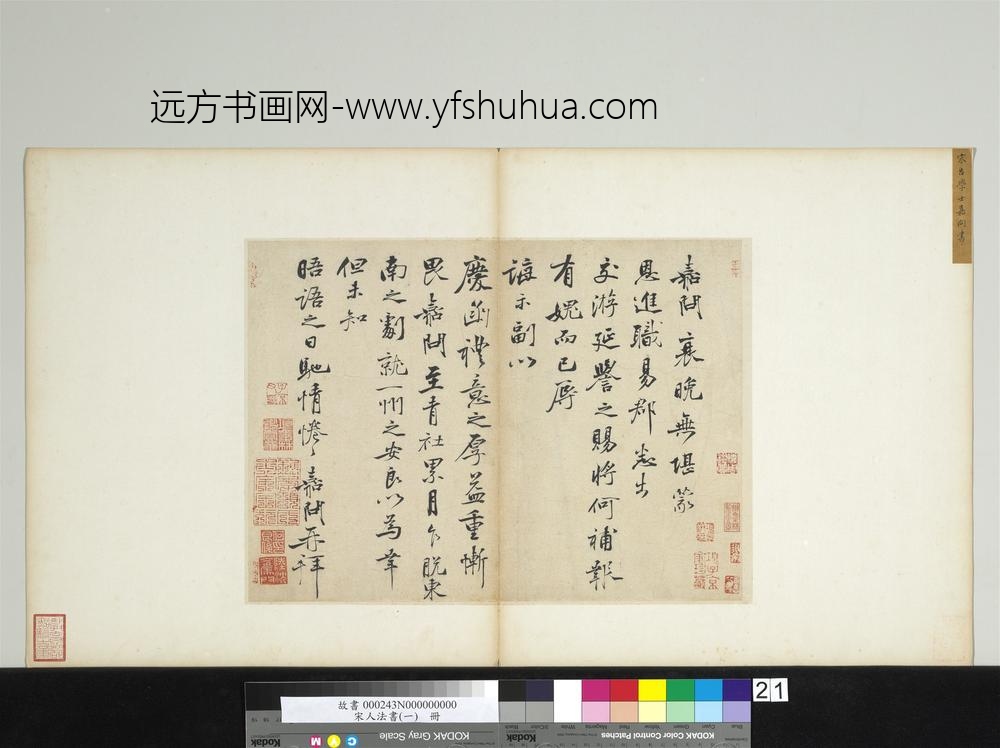 远方书画网-www.yfshuhua.com
宋呂學士嘉問書
嘉問衰晚無堪蒙
恩進職易郡忝出
交游延譽之賜將何補報
有媿而已辱
誨示副以
慶函禮意之厚益重慚
畏嘉問至青社累月乍脫東
南之劇就一州之安良以為幸
但未知
晤語之日馳情惓惓嘉問再拜
故書 000243N000000000
宋人法書(一) 冊
21
KODAK Gray Scale
KODAK Color Control Patches
Kodak
C
Y
M